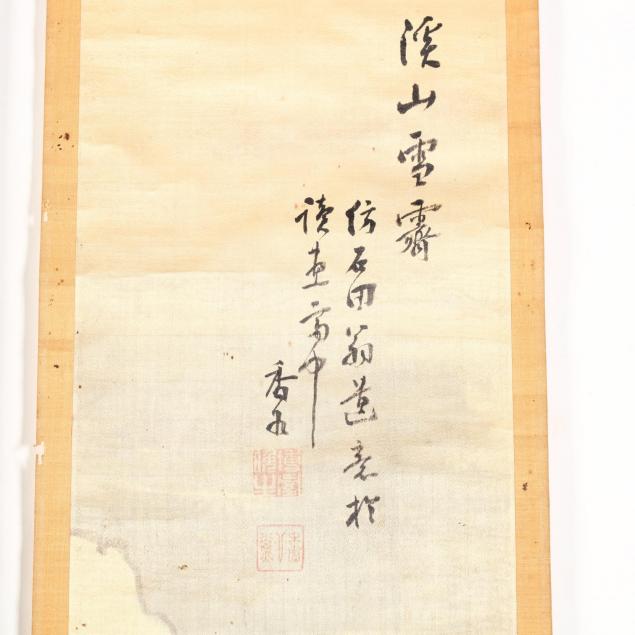 溪山雪霽
仿石田翁遺意於
讀畫齋中
香